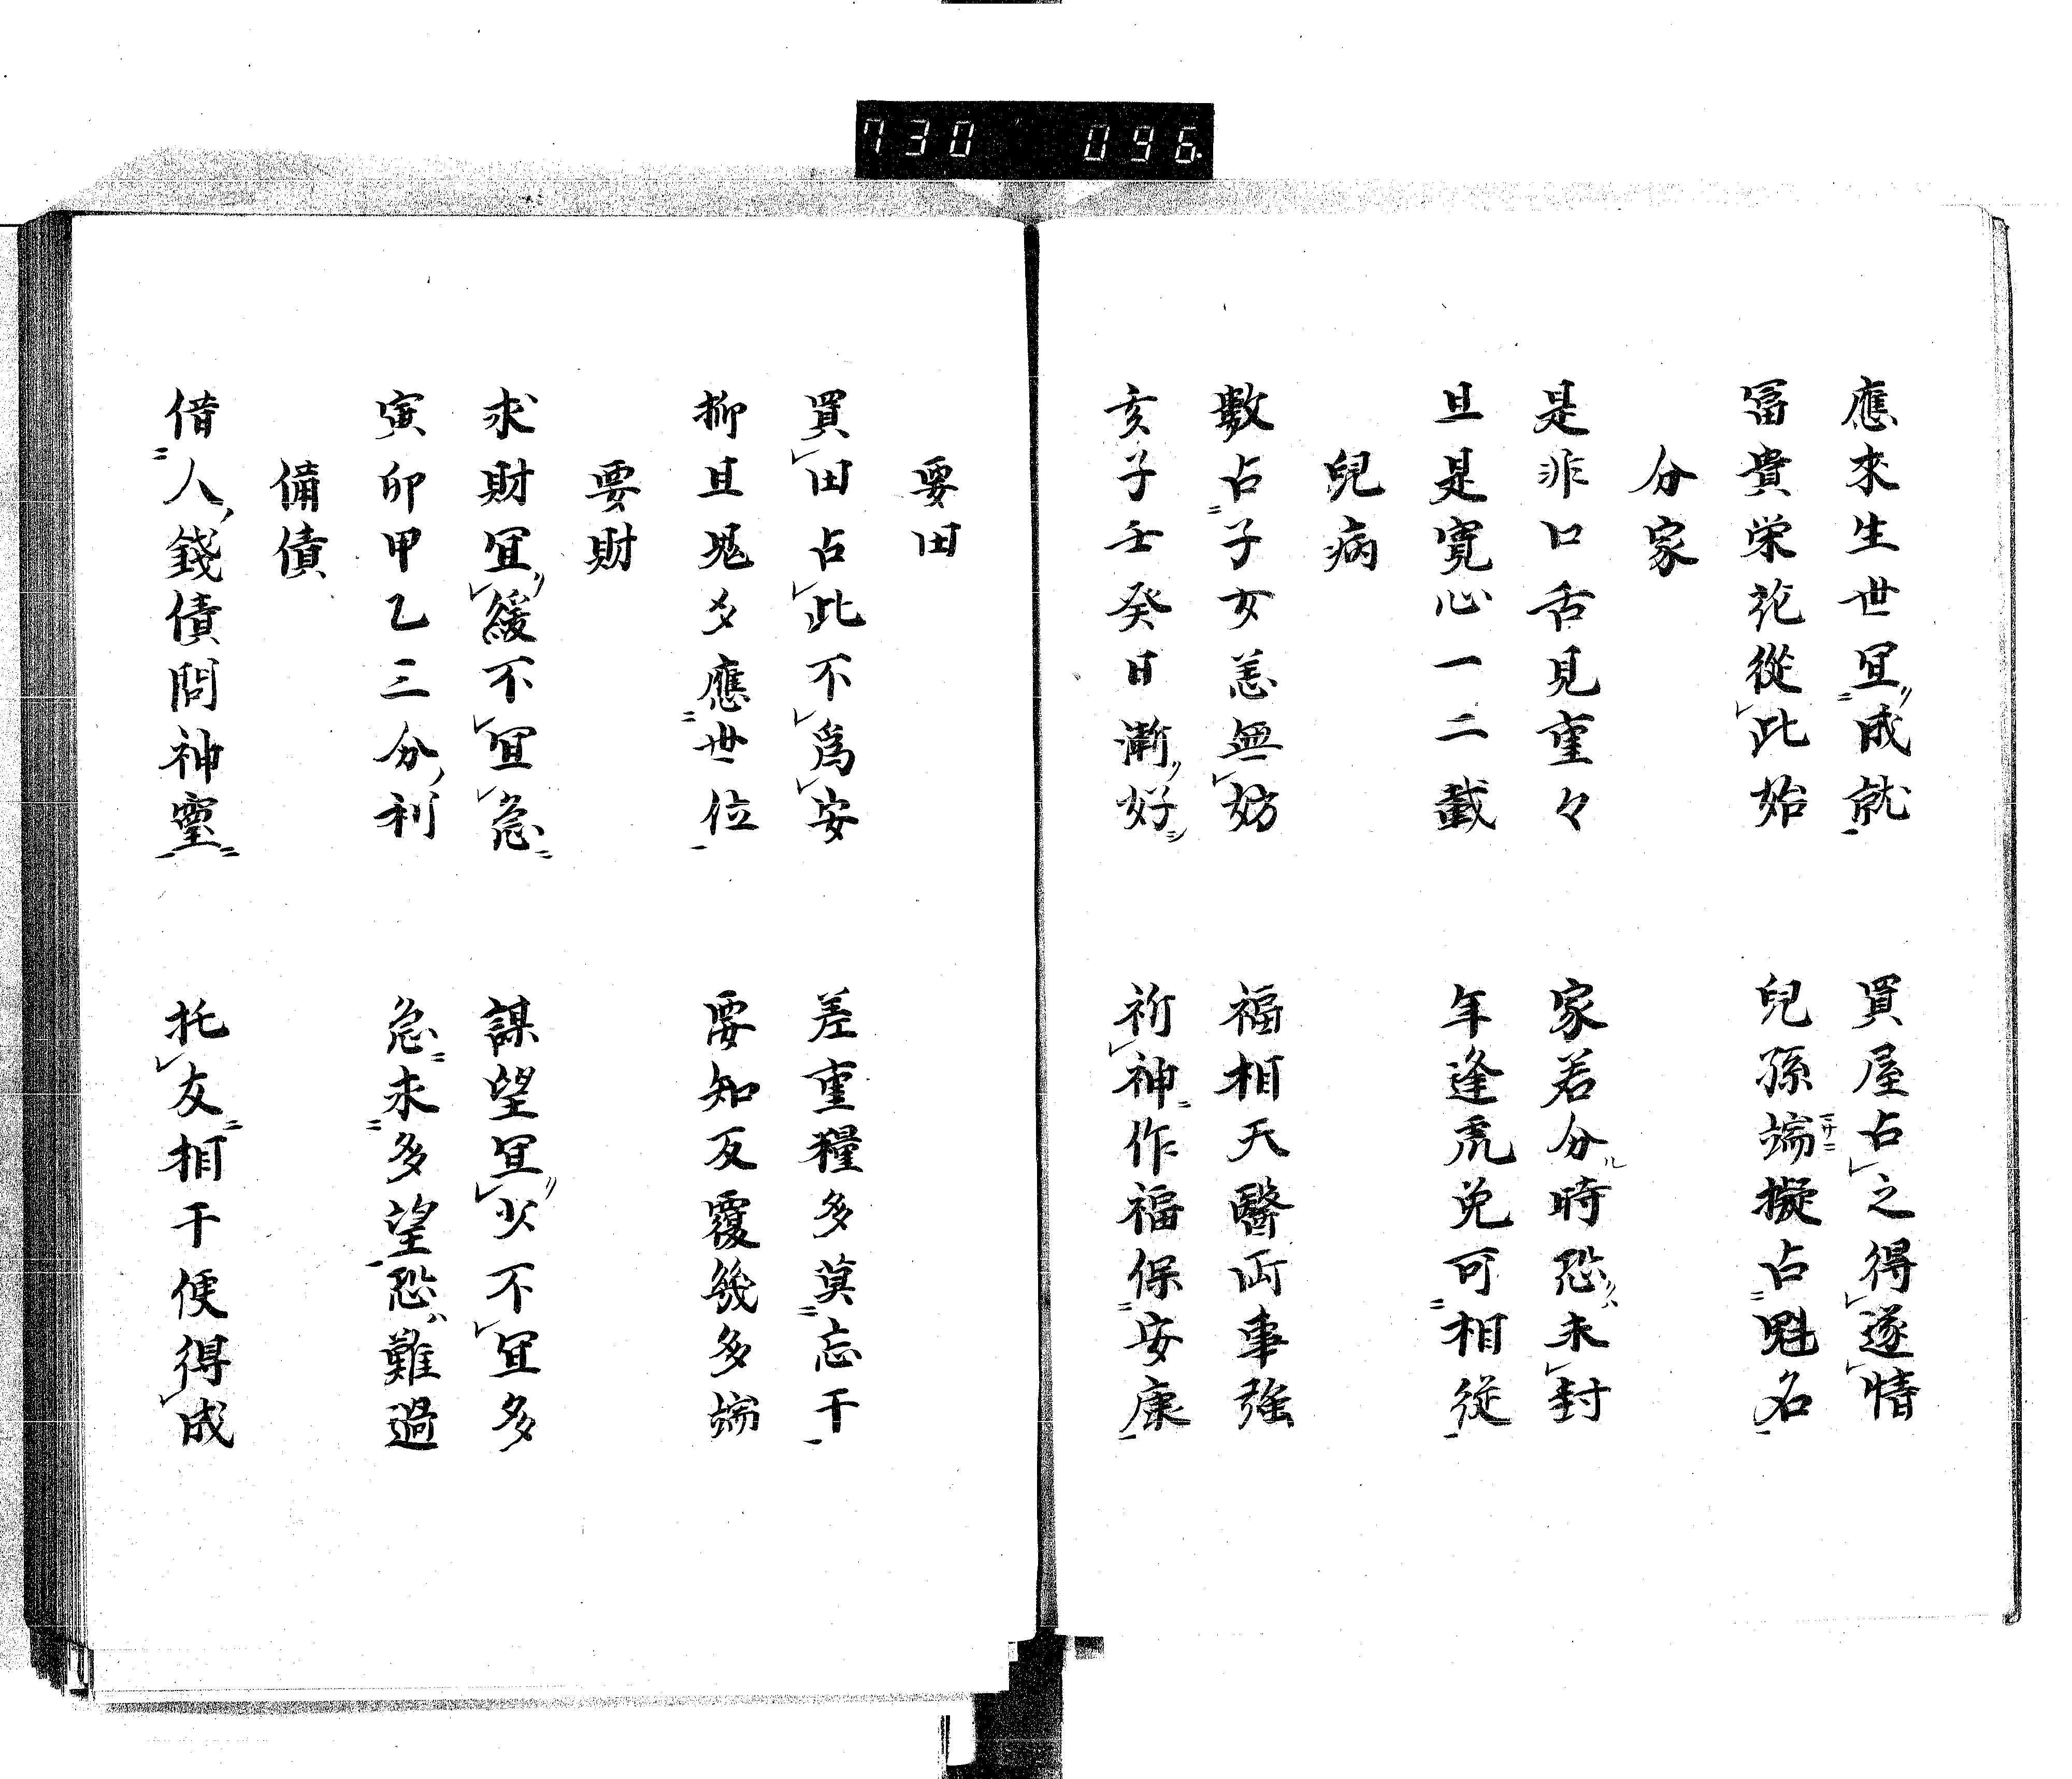 730 096
應來生世宜成就 買屋占之得遂情
冨貴栄花從此始 兒孫端擬占魁名
分家
是非口舌見重々 家若分時恐未封
且是寛心一二載 年逢虎兔可相從
兒病
數占子女恙無妨 福相天醫両事強
亥子壬癸日漸好 祈神作福保安康
要田
買田占此不爲安 差重糧多莫忘干
抑且鬼多應世位 要知反覆幾多端
要財
求財宜緩不宜急 謀望宜少不宜多
寅卯甲乙三分利 急未多望恐難過
備債
借人錢債問神霊 托友相干便得成